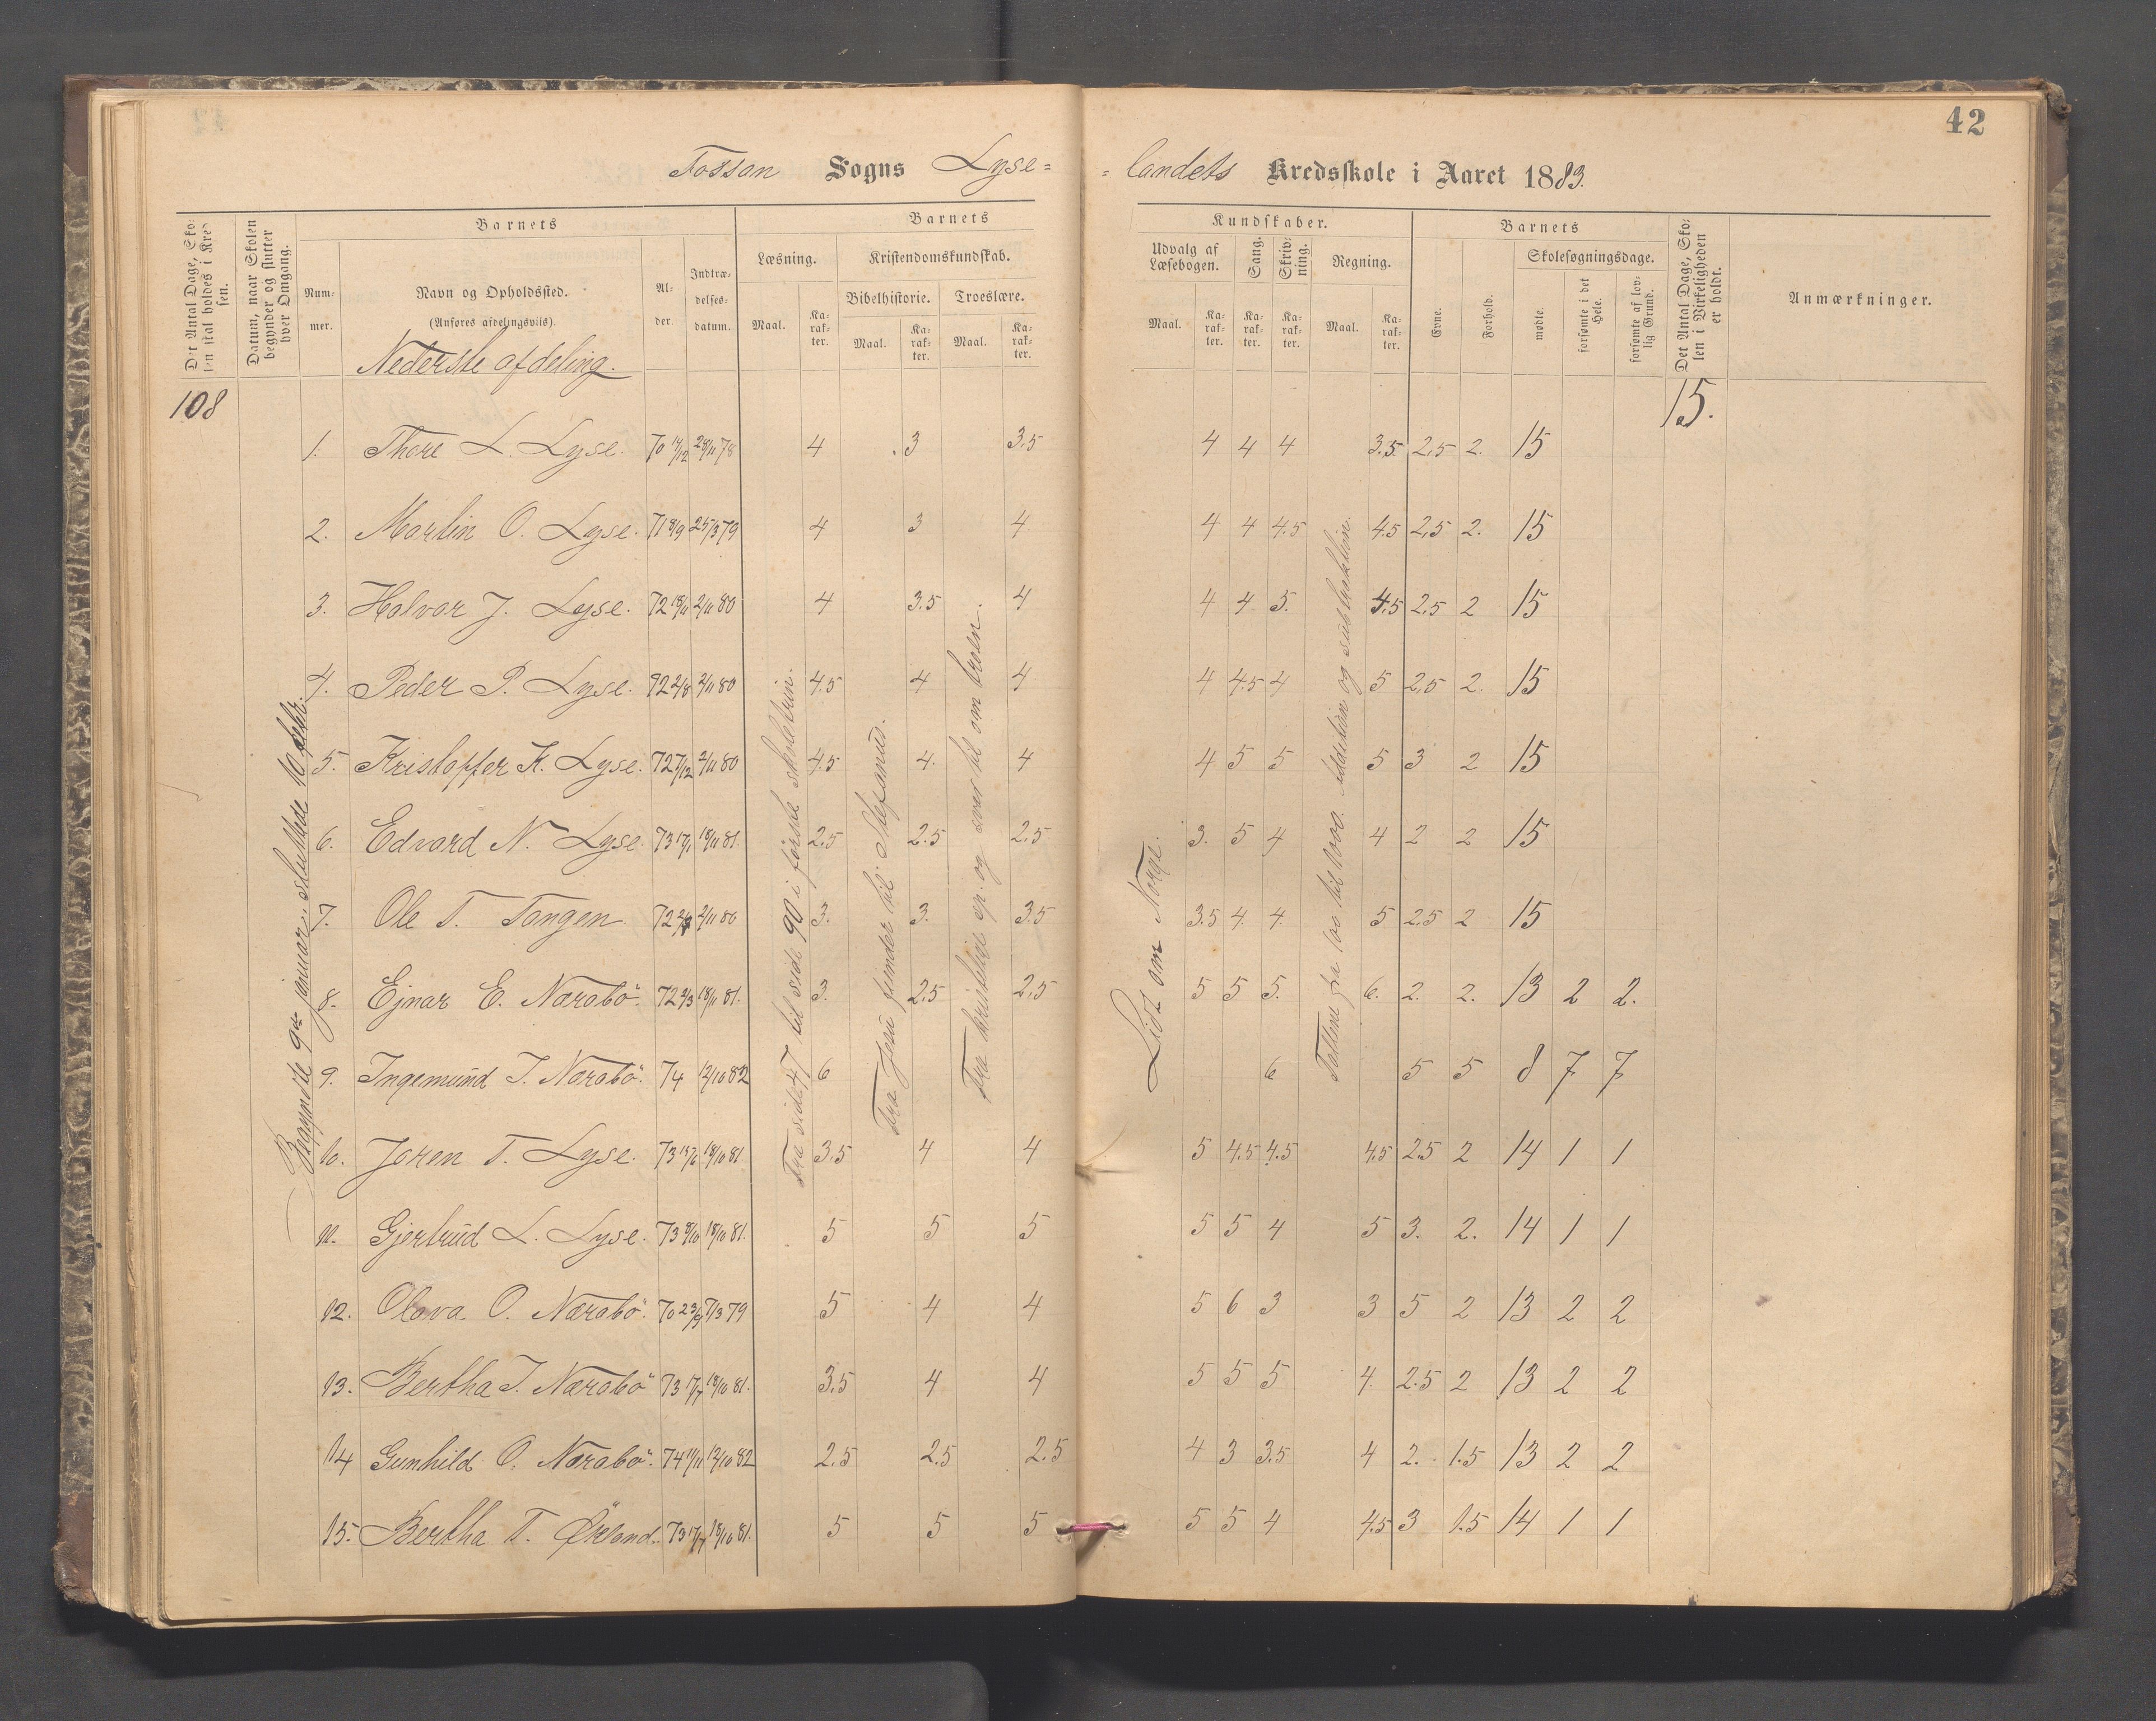 42
Fossan Sogns Lyse=
=landets Kredsskole i Aaret 1883.
Det Antal Dage, Skolen skal holdes i Kredsen.
Datum, naar Skolen begynder og slutter hver Omgang.
Barnets
Nummer.
Navn og Opholdssted.
(Anføres afdelingsviis)
Alder.
Indtrædelsesdatum.
Barnets
Læsning.
Kristendomskundskab.
Bibelhistorie.
Troeslære.
Maal.
Karakter.
Maal.
Karakter.
Maal.
Karakter.
Kundskaber.
Udvalg af Læsebogen.
Sang.
Skrivning.
Regning.
Maal.
Karakter.
Karakter.
Karakter.
Maal.
Karakter.
Barnets
Evne.
Forhold.
Skolesøgningsdage.
mødte.
forsømte i det Hele.
forsømte af lovlig Grund.
Det Antal Dage, Skolen i Virkeligheden er holdt.
Anmærkninger.
Nederste afdeling.
108
15.
Begyndte 9de januar, sluttede 10 febr.
Fra side 47 til side 90 i første skoletrin.
Fra Jesu fiender til Stefanus.
Fra kristelige ep. og over til om troen.
Lidt om Norge.
Tallene fra 100 til 1000. Addition og subtraktion.
1. Thore L. Lyse. 4 3 3.5 4 4 4 3.5 2.5 2. 15
2. Martin O. Lyse. 71 8/9 25/3 79 4 3 4 4 4 4.5 4.5 2.5 2. 15
3. Halvor J. Lyse. 72 18/11 2/11 80 4 3.5 4 4 4 5. 4.5 2.5 2 15
4. Peder P. Lyse. 72 2/8 2/11 80 4.5 4 4 4 4.5 4 5 2.5 2. 15
5. Kristoffer K. Lyse. 72 7/12 2/11 80 4.5 4. 4 4 5 5 5 3 2 15
6. Edvard N. Lyse. 73 17/1 18/11 81. 2.5 2.5 2.5 3. 5 4 4 2 2 15
7. Ole T. Tangen. 2/11 80 3. 3. 3.5 3.5 4. 4. 5 2.5 2 15
8. Ejnar E. Nærabö. 72 9/3 18/11 81. 3. 2.5 2.5 5 5 5. 6. 2. 2. 13 2 2.
9. Ingemund T. Nærabö. 74 12/10 82 6 6 5 5 8 7 7
10. Joren T. Lyse. 18/10 81 3.5 4 4 5 4.5 4.5 4.5 2.5 2 14 1 1
11. Gjertrud L. Lyse. 73 8/10 18/10 81. 5 5 5 5 5 4 5 3. 2. 14 1 1
12. Olava O. Nærabö. 70 23/9 7/3 79 5 4 4 5 6 3 3 5 2 13 2 2
13. Bertha I. Nærabö 73 17/7 18/10 81. 3.5 4 4 5 5 5 4. 2.5 2 13 2 2
14 Gunhild O. Nærabö. 74 11/11 12/10 82 2.5 2.5 2.5 4 3 3.5 4 2. 1.5 13 2 2
15. Bertha T. Økland. 73 17/7 18/10 81. 5 5 5 5 5 4 4.5 3 1.5 14 1 1